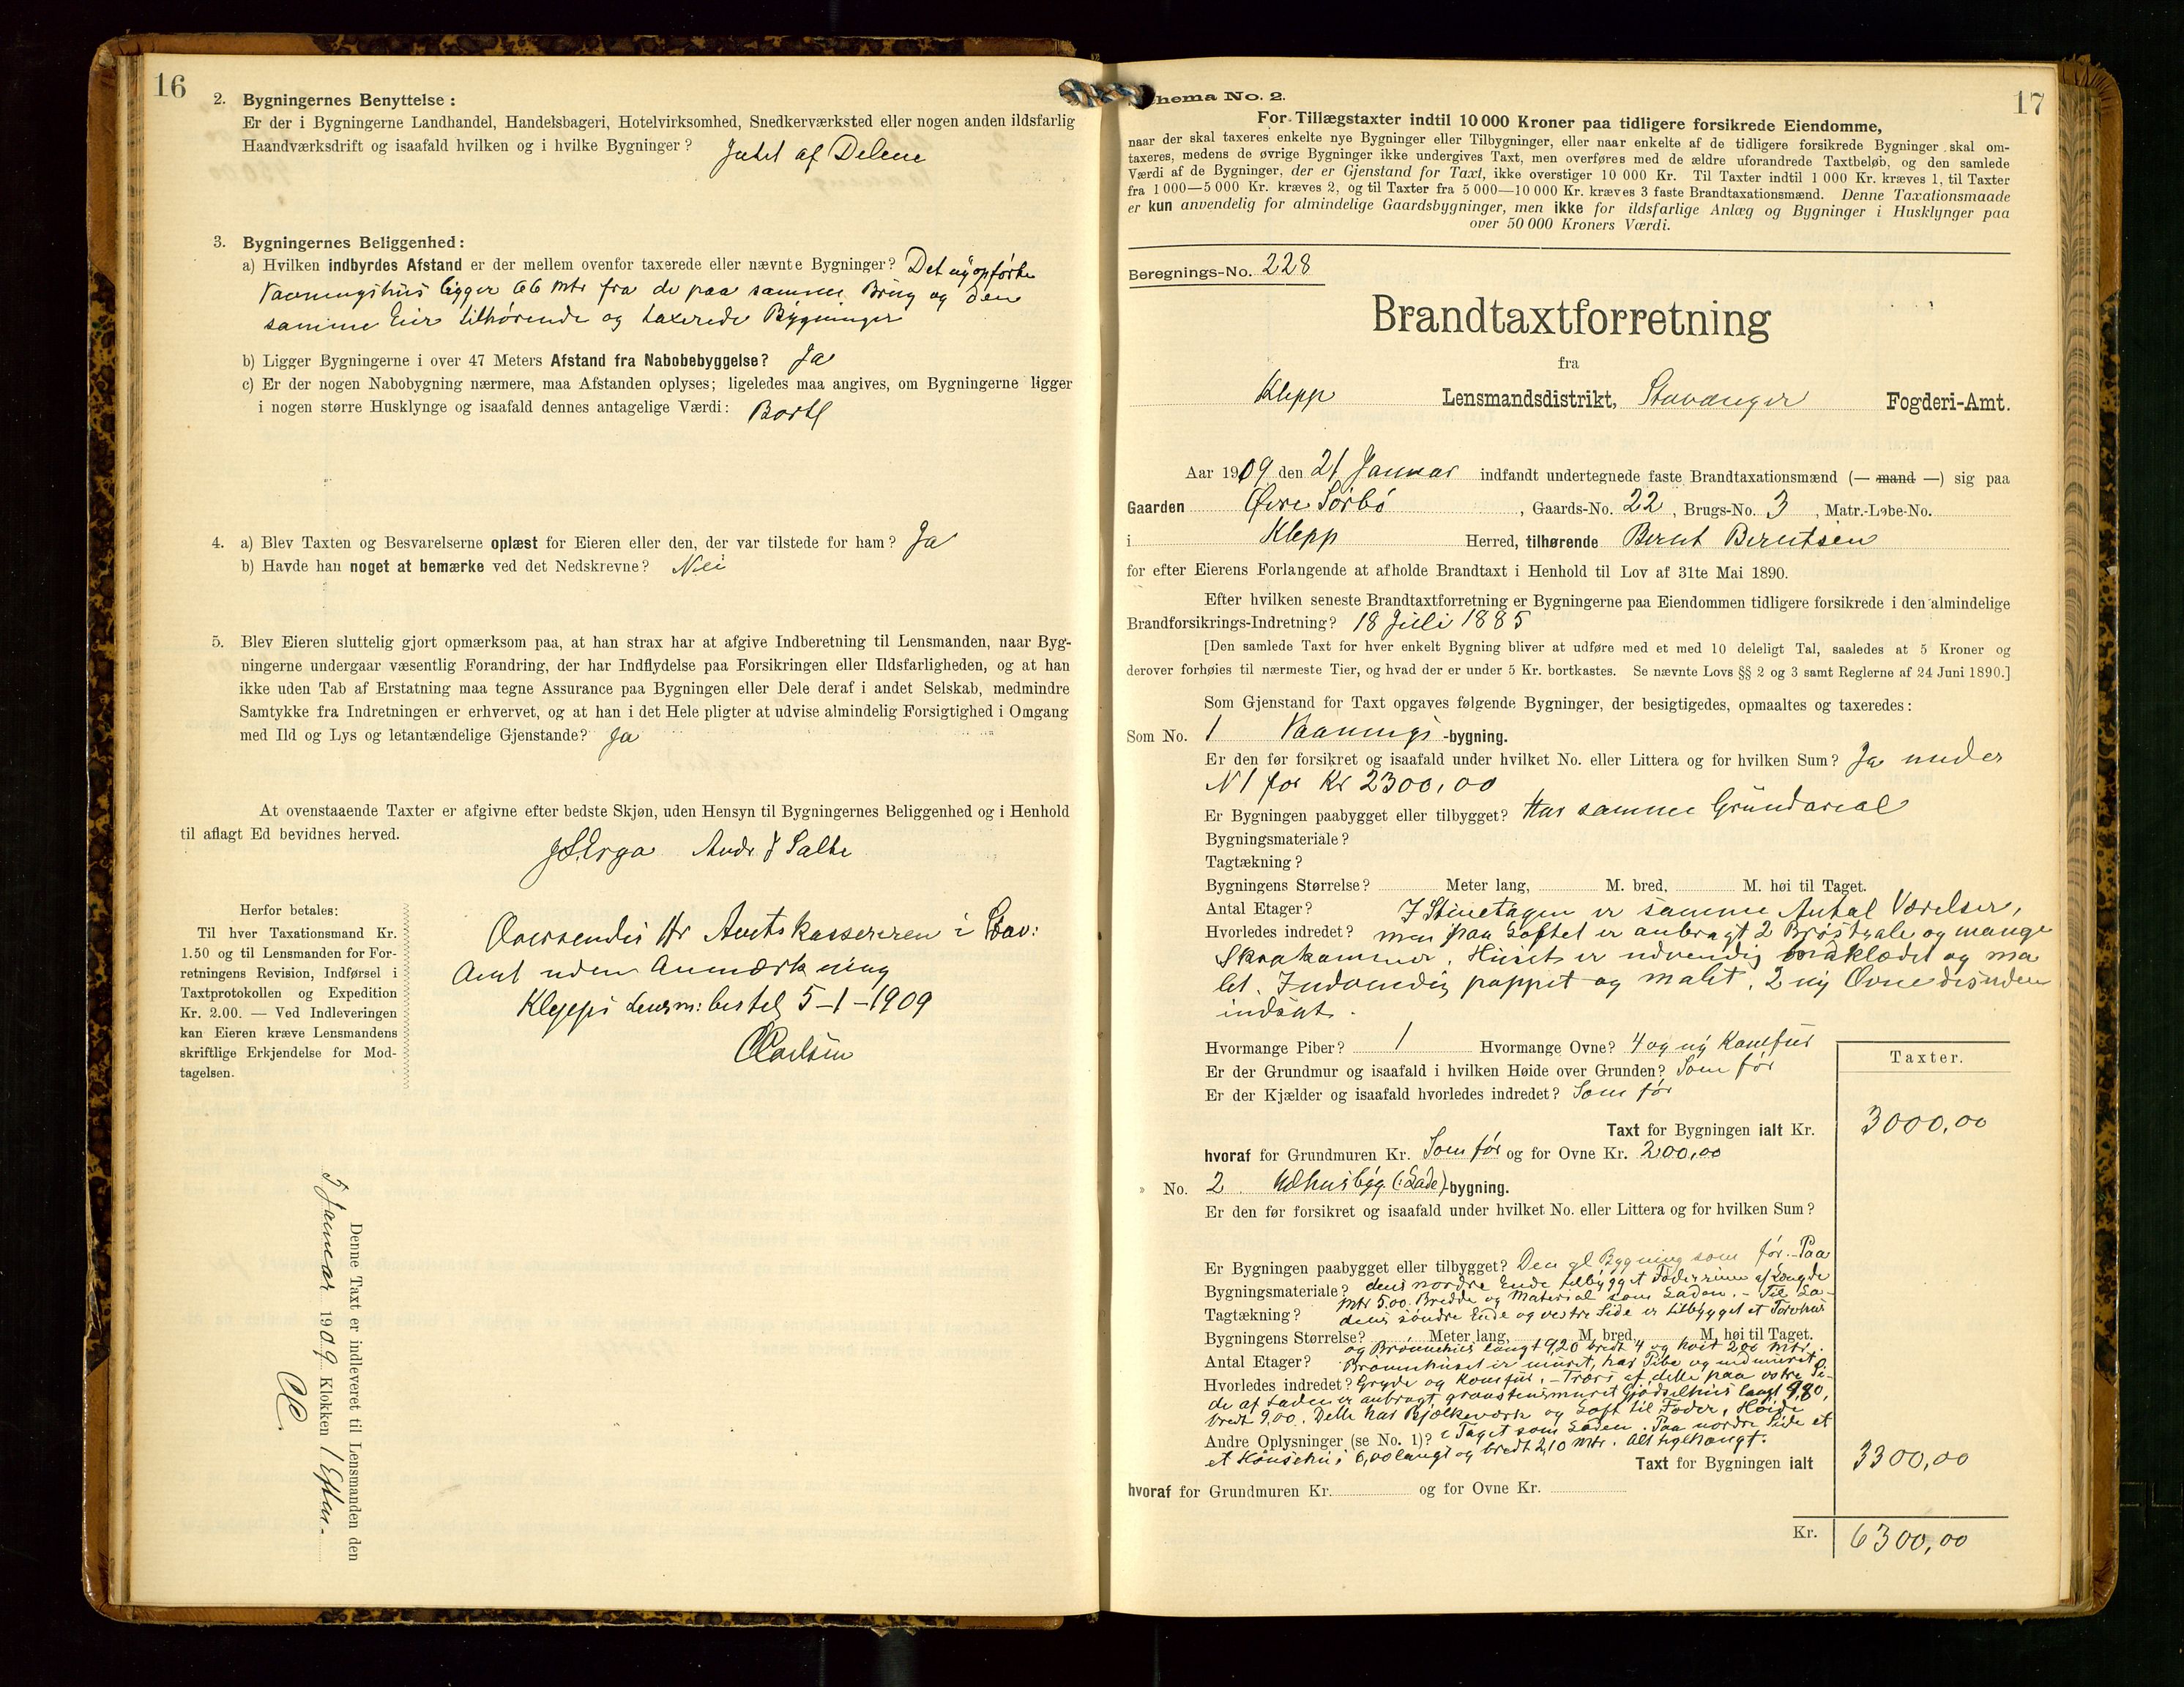 16
2. Bygningernes Benyttelse :
Er der i Bygningerne Landhandel, Handelsbageri, Hotelvirksomhed, Snedkerværksted eller nogen anden ildsfarlig
Haandværksdrift og isaafald hvilken og i hvilke Bygninger ? Intet af Delene
3. Bygningernes Beliggenhed :
a) Hvilken indbyrdes Afstand er der mellem ovenfor taxerede eller nævnte Bygninger ? Det nyopførte
Vaaningshus ligger 66 Mtr fra de paa samme Brug og den
samme Eier tilhørende og taxerede Bygninger
b) Ligger Bygningerne i over 47 Meters Afstand fra Nabobebyggelse ? Ja
c) Er der nogen Nabobygning nærmere, maa Afstanden oplyses; ligeledes maa angives, om Bygningerne ligger
i nogen større Husklynge og isaafald dennes antagelige Værdi : Bortf
4. a) Blev Taxten og Besvarelserne oplæst for Eieren eller den, der var tilstede for ham ? Ja
b) Havde han noget at bemærke ved det Nedskrevne ? Nei
5. Blev Eieren sluttelig gjort opmærksom paa, at han strax har at afgive Indberetning til Lensmanden, naar Byg-
ningerne undergaar væsentlig Forandring, der har Indflydelse paa Forsikringen eller Ildsfarligheden, og at han
ikke uden Tab af Erstatning maa tegne Assurance paa Bygningen eller Dele deraf i andet Selskab, medmindre
Samtykke fra Indretningen er erhvervet, og at han i det Hele pligter at udvise almindelig Forsigtighed i Omgang
med Ild og Lys og letantændelige Gjenstande? Ja
At ovenstaaende Taxter er afgivne efter bedste Skjøn, uden Hensyn til Bygningernes Beliggenhed og i Henhold
til aflagt Ed bevidnes herved.
J S Erga Andr. J Salte
Herfor betales:
Til hver Taxationsmand Kr.
1.50 og til Lensmanden for For-
retningens Revision, Indførsel i
Taxtprotokollen og Expedition
Kr. 2.00. — Ved Indleveringen
kan Eieren kræve Lensmandens
skriftlige Erkjendelse for Mod-
tagelsen.
Oversendes Hr Amtskassereren i Stav:
Amt uden Anmærkning
Klepps Lensm: bestel 5-1-1909
Denne Taxt er indleveret til Lensmanden den
5 Januar 1909 Klokken 1 Efterm.
17
hema No. 2.
For Tillægstaxter indtil 10 000 Kroner paa tidligere forsikrede Eiendomme,
naar der skal taxeres enkelte nye Bygninger eller Tilbygninger, eller naar enkelte af de tidligere forsikrede Bygninger skal om-
taxeres, medens de øvrige Bygninger ikke undergives Taxt, men overføres med de ældre uforandrede Taxtbeløb, og den samlede
Værdi af de Bygninger, der er Gjenstand for Taxt, ikke overstiger 10 000 Kr. Til Taxter indtil 1 000 Kr. kræves 1, til Taxter
fra 1 000—5 000 Kr. kræves 2, og til Taxter fra 5 000—10 000 Kr. kræves 3 faste Brandtaxationsmænd. Denne Taxationsmaade
er kun anvendelig for almindelige Gaardsbygninger, men ikke for ildsfarlige Anlæg og Bygninger i Husklynger paa
over 50 000 Kroners Værdi.
Beregnings-No. 228
Brandtaxtforretning
fra
Klepp Lensmandsdistrikt, Stavanger Fogderi-Amt.
Aar 1909 den 21 Januar indfandt undertegnede faste Brandtaxationsmænd (— mand —) sig paa
Gaarden Øvre Sørbø, Gaards-No. 22, Brugs-No. 3, Matr.-Løbe-No.
i Klepp Herred, tilhørende Bernt Berntsen
for efter Eierens Forlangende at afholde Brandtaxt i Henhold til Lov af 31te Mai 1890.
Efter hvilken seneste Brandtaxtforretning er Bygningerne paa Eiendommen tidligere forsikrede i den almindelige
Brandforsikrings-Indretning? 18 Juli 1885
[Den samlede Taxt for hver enkelt Bygning bliver at udføre med et med 10 deleligt Tal, saaledes at 5 Kroner og
derover forhøies til nærmeste Tier, og hvad der er under 5 Kr. bortkastes. Se nævnte Lovs §§ 2 og 3 samt Reglerne af 24 Juni 1890.]
Som Gjenstand for Taxt opgaves følgende Bygninger, der besigtigedes, opmaaltes og taxeredes :
Som No. 1 Vaanings-bygning.
Er den før forsikret og isaafald under hvilket No. eller Littera og for hvilken Sum? Ja under
N 1 for Kr 2300,00
Er Bygningen paabygget eller tilbygget? Har samme Grundareal
Bygningsmateriale ?
Tagtækning ?
Bygningens Størrelse ? Meter lang, M. bred, M. høi til Taget.
Antal Etager ? I Stuetagen er samme Antal Værelser,
Hvorledes indredet ? men paa Loftet er anbragt 2 Brøstvale og mange
Skraakammer. Huset er udvendig bordklædet og ma
let. Indvendig pappet og malet. 2 ny Ovne desuden
indsat.
Hvormange Piber ? 1 Hvormange Ovne? 4 og ny Komfur
Er der Grundmur og isaafald i hvilken Høide over Grunden? Som før
Er der Kjælder og isaafald hvorledes indredet ? Som før
Taxter.
Taxt for Bygningen ialt Kr. 3000,00
hvoraf for Grundmuren Kr. Som før og for Ovne Kr. 200,00
No. 2 Udhusbyg. (: Lade)-bygning.
Er den før forsikret og isaafald under hvilket No. eller Littera og for hvilken Sum ?
Er Bygningen paabygget eller tilbygget? Den gl Bygning som før. - Paa
Bygningsmateriale ? dens nordre Ende tilbygget Foderrum af Længde
Tagtækning ? Mtr 5.00. Bredde og Material som Laden. - Til La-
dens søndre Ende og vestre Side er tilbygget et Torvhus
Bygningens Størrelse? Meter lang, M. bred, M. høi til Taget.
og Brønnehus langt 9,20 bredt 4 og høit 2,00 Mtr.
Antal Etager ? Brønnhuset er muret, har Pibe og indmuret
Hvorledes indredet ? Gryde og Komfur. - Tværs af dette paa østre Si-
de af Laden er anbragt graastensmuret Gjødselhus langt 9,80,
bredt 9.00. Dette har Bjælkeværk og Loft til Foder, Høide
Andre Oplysninger (se No. 1)? i Taget som Laden. Paa nordre Side et
et Hønsehus 6,00 langt og bredt 2,10 Mtr. Alt teglhængt.
Taxt for Bygningen ialt 3300,00
hvoraf for Grundmuren Kr. og for Ovne Kr.
Kr. 6300,00